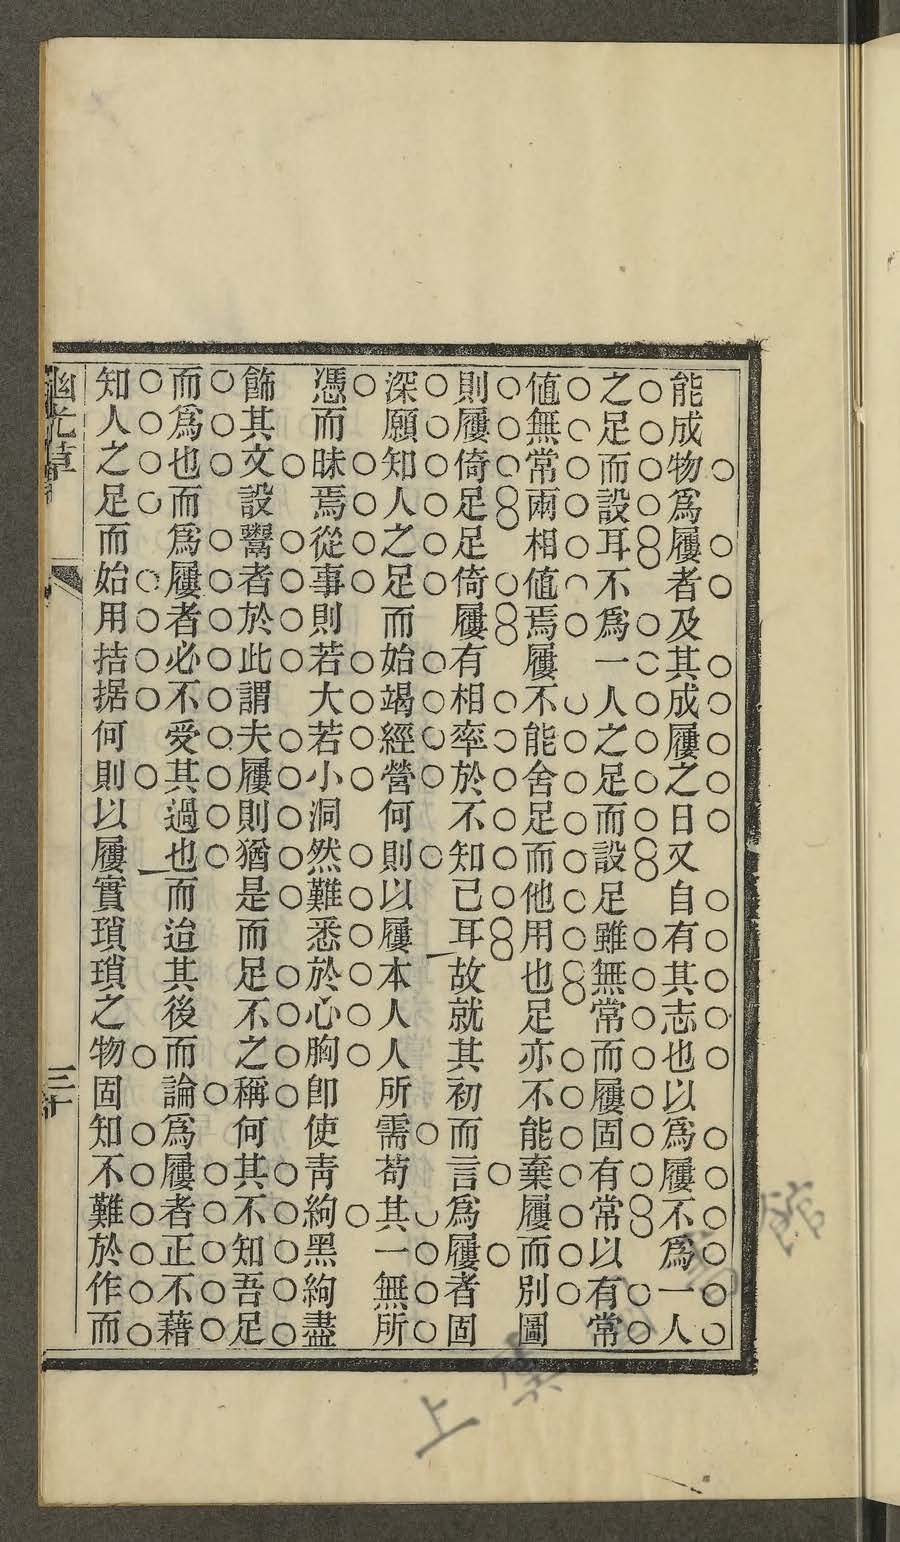 能成物爲屨者及其成屨之日又自有其志也以爲屨不爲一人
之足而設耳不爲一人之足而設足雖無常而屨固有常以有常
値無常兩相値焉屨不能舍足而他用也足亦不能棄屨而別圖
則屨倚足足倚屨有相率於不知已耳故就其初而言爲屨者固
深願知人之足而始竭經營何則以屨本人人所需苟其一無所
憑而昧焉從事則若大若小洞然難悉於心胸卽使靑絇黑絇盡
飾其文設鬻者於此謂夫屨則猶是而足不之稱何其不知吾足
而爲也而爲屨者必不受其過也而迨其後而論爲屨者正不藉
知人之足而始用拮据何則以屨實瑣瑣之物固知不難於作而
幽光草
三十
上